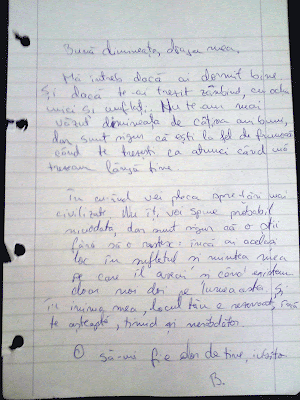 Bună dimineața, draga mea,
Mă întreb dacă ai dormit bine
și dacă te-ai trezit zâmbind, cu ochii
mici și umflați. Nu te-am mai
văzut dimineața de câțiva ani buni,
dar sunt sigur că ești la fel de frumoasă
când te trezești ca atunci când mă
trezeam lângă tine.
În curând vei pleca spre țări mai
civilizate. Nu îți voi spune probabil
niciodată, dar sunt sigur că o știi
fără să o rostesc: încă ai același
loc în sufletul și mintea mea
pe care îl aveai și când existam
doar noi doi pe lumea asta. Și
în inima mea, locul tău e rezervat, încă
te așteaptă, timid și nerăbdător.
O să-mi fie dor de tine, iubito
B.